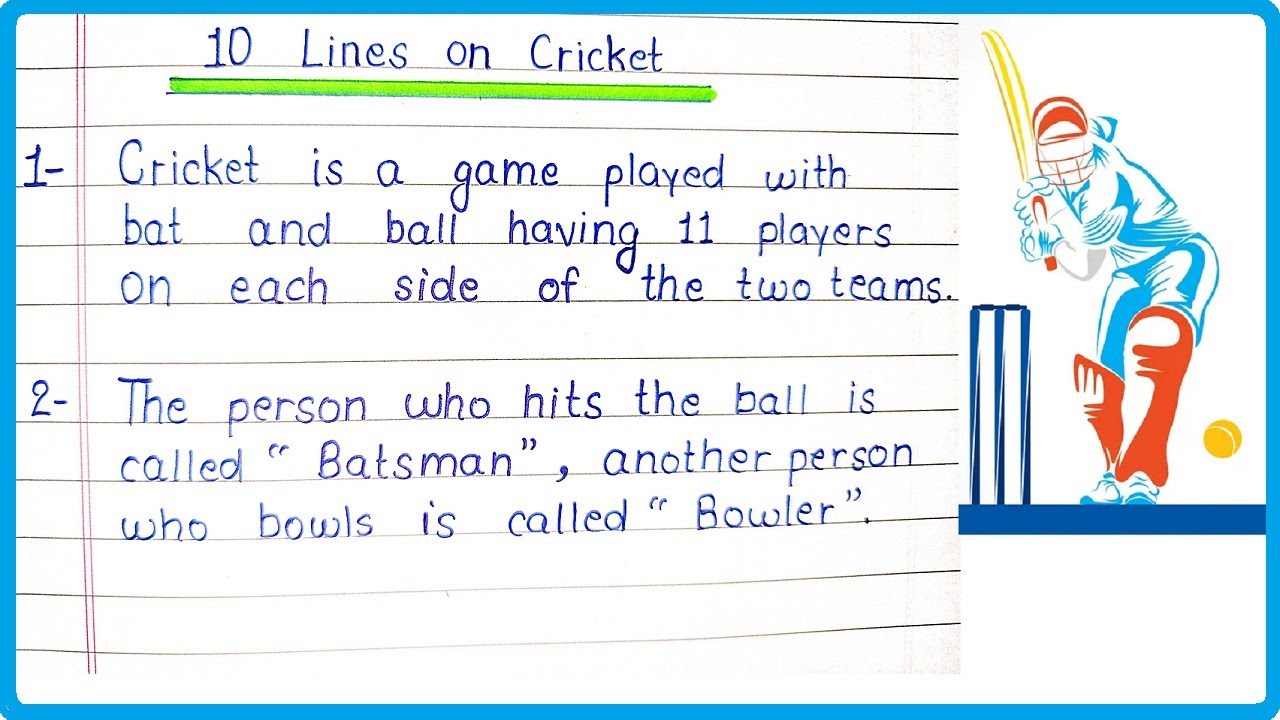 10 Lines on Cricket
1- Cricket is a game played with
bat and ball having 11 players
on each side of the two teams.
2- The person who hits the ball is
called "Batsman", another person
who bowls is called "Bowler".